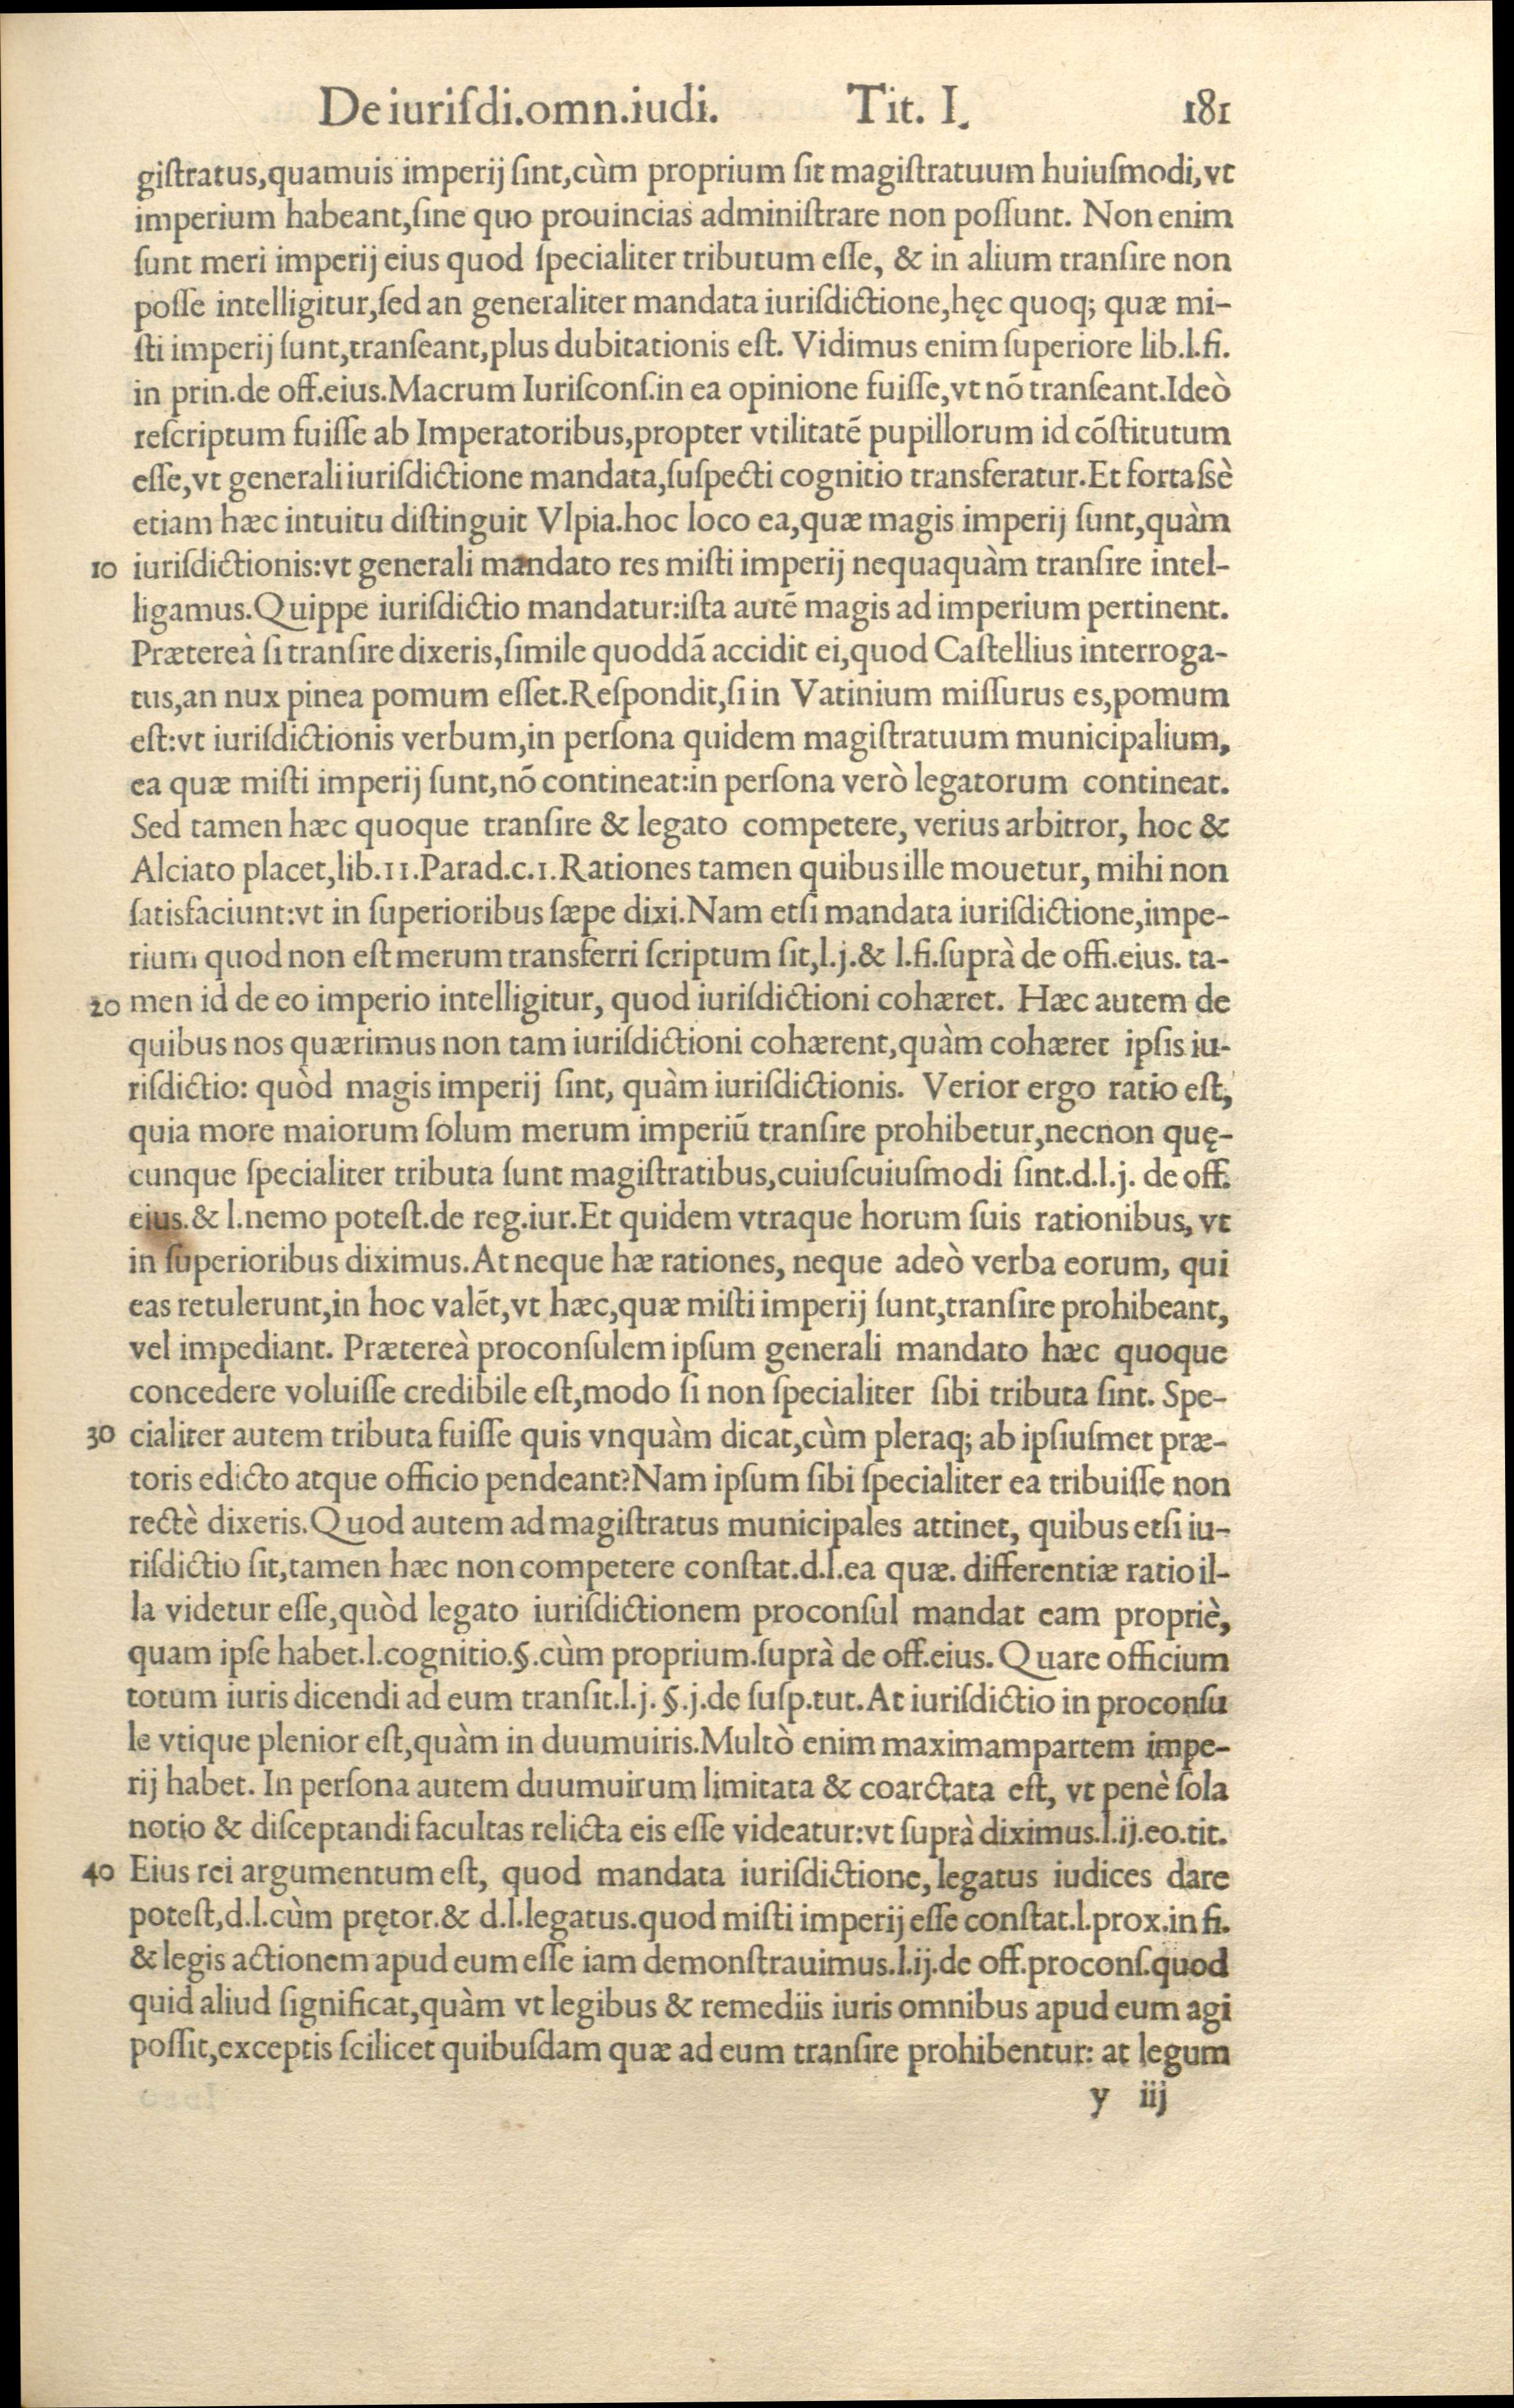 De iuriſdi.omn.iudi. Tit. I. 181
giſtratus,quamuis imperij ſint,cùm proprium ſit magiſtratuum huiuſmodi,vt
imperium habeant,ſine quo prouincias adminiſtrare non poſſunt. Non enim
ſunt meri imperij eius quod ſpecialiter tributum eſſe, & in alium tranſire non
poſſe intelligitur,ſed an generaliter mandata iuriſdictione,hęc quoq; quæ mi-
ſti imperij ſunt,tranſeant,plus dubitationis eſt. Vidimus enim ſuperiore lib.l.fi.
in prin.de off.eius.Macrum Iuriſconſ.in ea opinione fuiſſe,vt nō tranſeant.Ideò
reſcriptum fuiſſe ab Imperatoribus,propter vtilitatē pupillorum id cōſtitutum
eſſe,vt generali iuriſdictione mandata,ſuſpecti cognitio transferatur.Et fortaſsè
etiam hæc intuitu diſtinguit Vlpia.hoc loco ea,quæ magis imperij ſunt,quàm
10 iuriſdictionis:vt generali mandato res miſti imperij nequaquàm tranſire intel-
ligamus.Quippe iuriſdictio mandatur:iſta autē magis ad imperium pertinent.
Prætereà ſi tranſire dixeris,ſimile quoddā accidit ei,quod Caſtellius interroga-
tus,an nux pinea pomum eſſet.Reſpondit,ſi in Vatinium miſſurus es,pomum
eſt:vt iuriſdictionis verbum,in perſona quidem magiſtratuum municipalium,
ea quæ miſti imperij ſunt,nō contineat:in perſona verò legatorum contineat.
Sed tamen hæc quoque tranſire & legato competere, verius arbitror, hoc &
Alciato placet,lib.11.Parad.c.1.Rationes tamen quibus ille mouetur, mihi non
ſatisfaciunt:vt in ſuperioribus ſæpe dixi.Nam etſi mandata iuriſdictione,impe-
rium quod non eſt merum transferri ſcriptum ſit,l.j.& l.fi.ſuprà de offi.eius. ta-
20 men id de eo imperio intelligitur, quod iuriſdictioni cohæret. Hæc autem de
quibus nos quærimus non tam iuriſdictioni cohærent,quàm cohæret ipſis iu-
riſdictio: quòd magis imperij ſint, quàm iuriſdictionis. Verior ergo ratio eſt,
quia more maiorum ſolum merum imperiū tranſire prohibetur,necnon quę-
cunque ſpecialiter tributa ſunt magiſtratibus,cuiuſcuiuſmodi ſint.d.l.j. de off.
eius.& l.nemo poteſt.de reg.iur.Et quidem vtraque horum ſuis rationibus, vt
in ſuperioribus diximus.At neque hæ rationes, neque adeò verba eorum, qui
eas retulerunt,in hoc valēt,vt hæc,quæ miſti imperij ſunt,tranſire prohibeant,
vel impediant. Prætereà proconſulem ipſum generali mandato hæc quoque
concedere voluiſſe credibile eſt,modo ſi non ſpecialiter ſibi tributa ſint. Spe-
30 cialiter autem tributa fuiſſe quis vnquàm dicat,cùm pleraq; ab ipſiuſmet præ-
toris edicto atque officio pendeant?Nam ipſum ſibi ſpecialiter ea tribuiſſe non
rectè dixeris.Quod autem ad magiſtratus municipales attinet, quibus etſi iu-
riſdictio ſit,tamen hæc non competere conſtat.d.l.ea quæ. differentiæ ratio il-
la videtur eſſe,quòd legato iuriſdictionem proconſul mandat eam propriè,
quam ipſe habet.l.cognitio.§.cùm proprium.ſuprà de off.eius. Quare officium
totum iuris dicendi ad eum tranſit.l.j. §.j.de ſuſp.tut.At iuriſdictio in proconſu
le vtique plenior eſt,quàm in duumuiris.Multò enim maximampartem impe-
rij habet. In perſona autem duumuirum limitata & coarctata eſt, vt penè ſola
notio & diſceptandi facultas relicta eis eſſe videatur:vt ſuprà diximus.l.ij.eo.tit.
40 Eius rei argumentum eſt, quod mandata iuriſdictione, legatus iudices dare
poteſt,d.l.cùm prętor.& d.l.legatus.quod miſti imperij eſſe conſtat.l.prox.in fi.
& legis actionem apud eum eſſe iam demonſtrauimus.l.ij.de off.proconſ.quod
quid aliud ſignificat,quàm vt legibus & remediis iuris omnibus apud eum agi
poſſit,exceptis ſcilicet quibuſdam quæ ad eum tranſire prohibentur: at legum
y iij